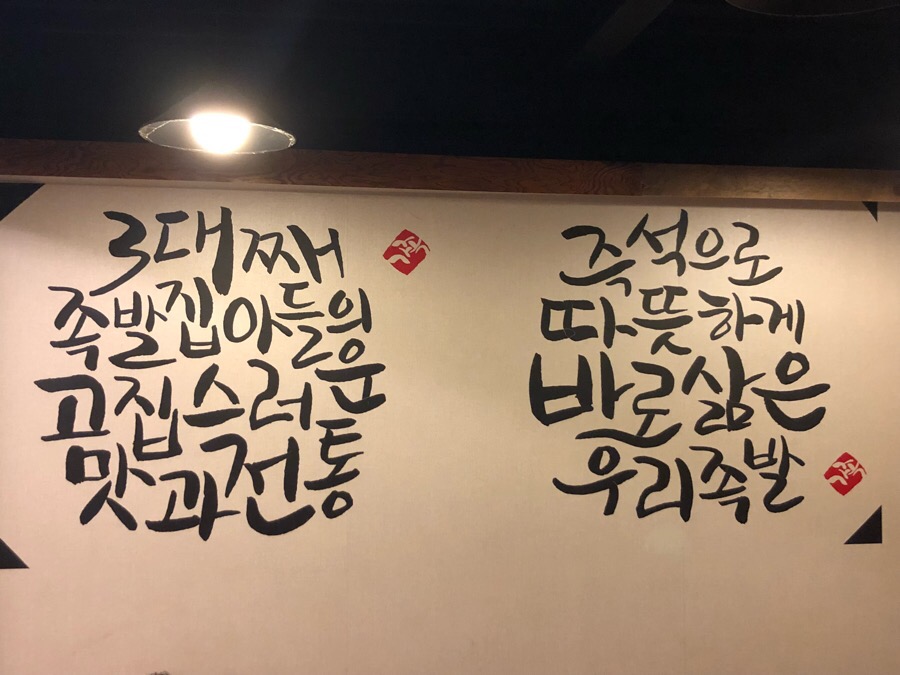 3대째
족발집아들의
고집스러운
맛과전통
즈석으로
따뜻하게
바로삶은
우리족발